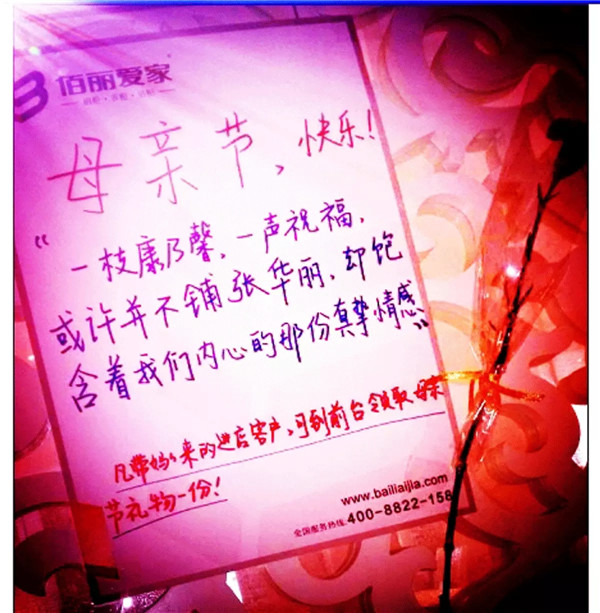 佰丽爱家
母亲节,快乐!
“一枝康乃馨,一声祝福,
或许并不铺张华丽,却饱
含着我们内心的那份真挚情感”
凡带妈妈来的进店客户,可到前台领取母亲
节礼物一份!
www.bailiaijia.com
全国服务热线:400-8822-158